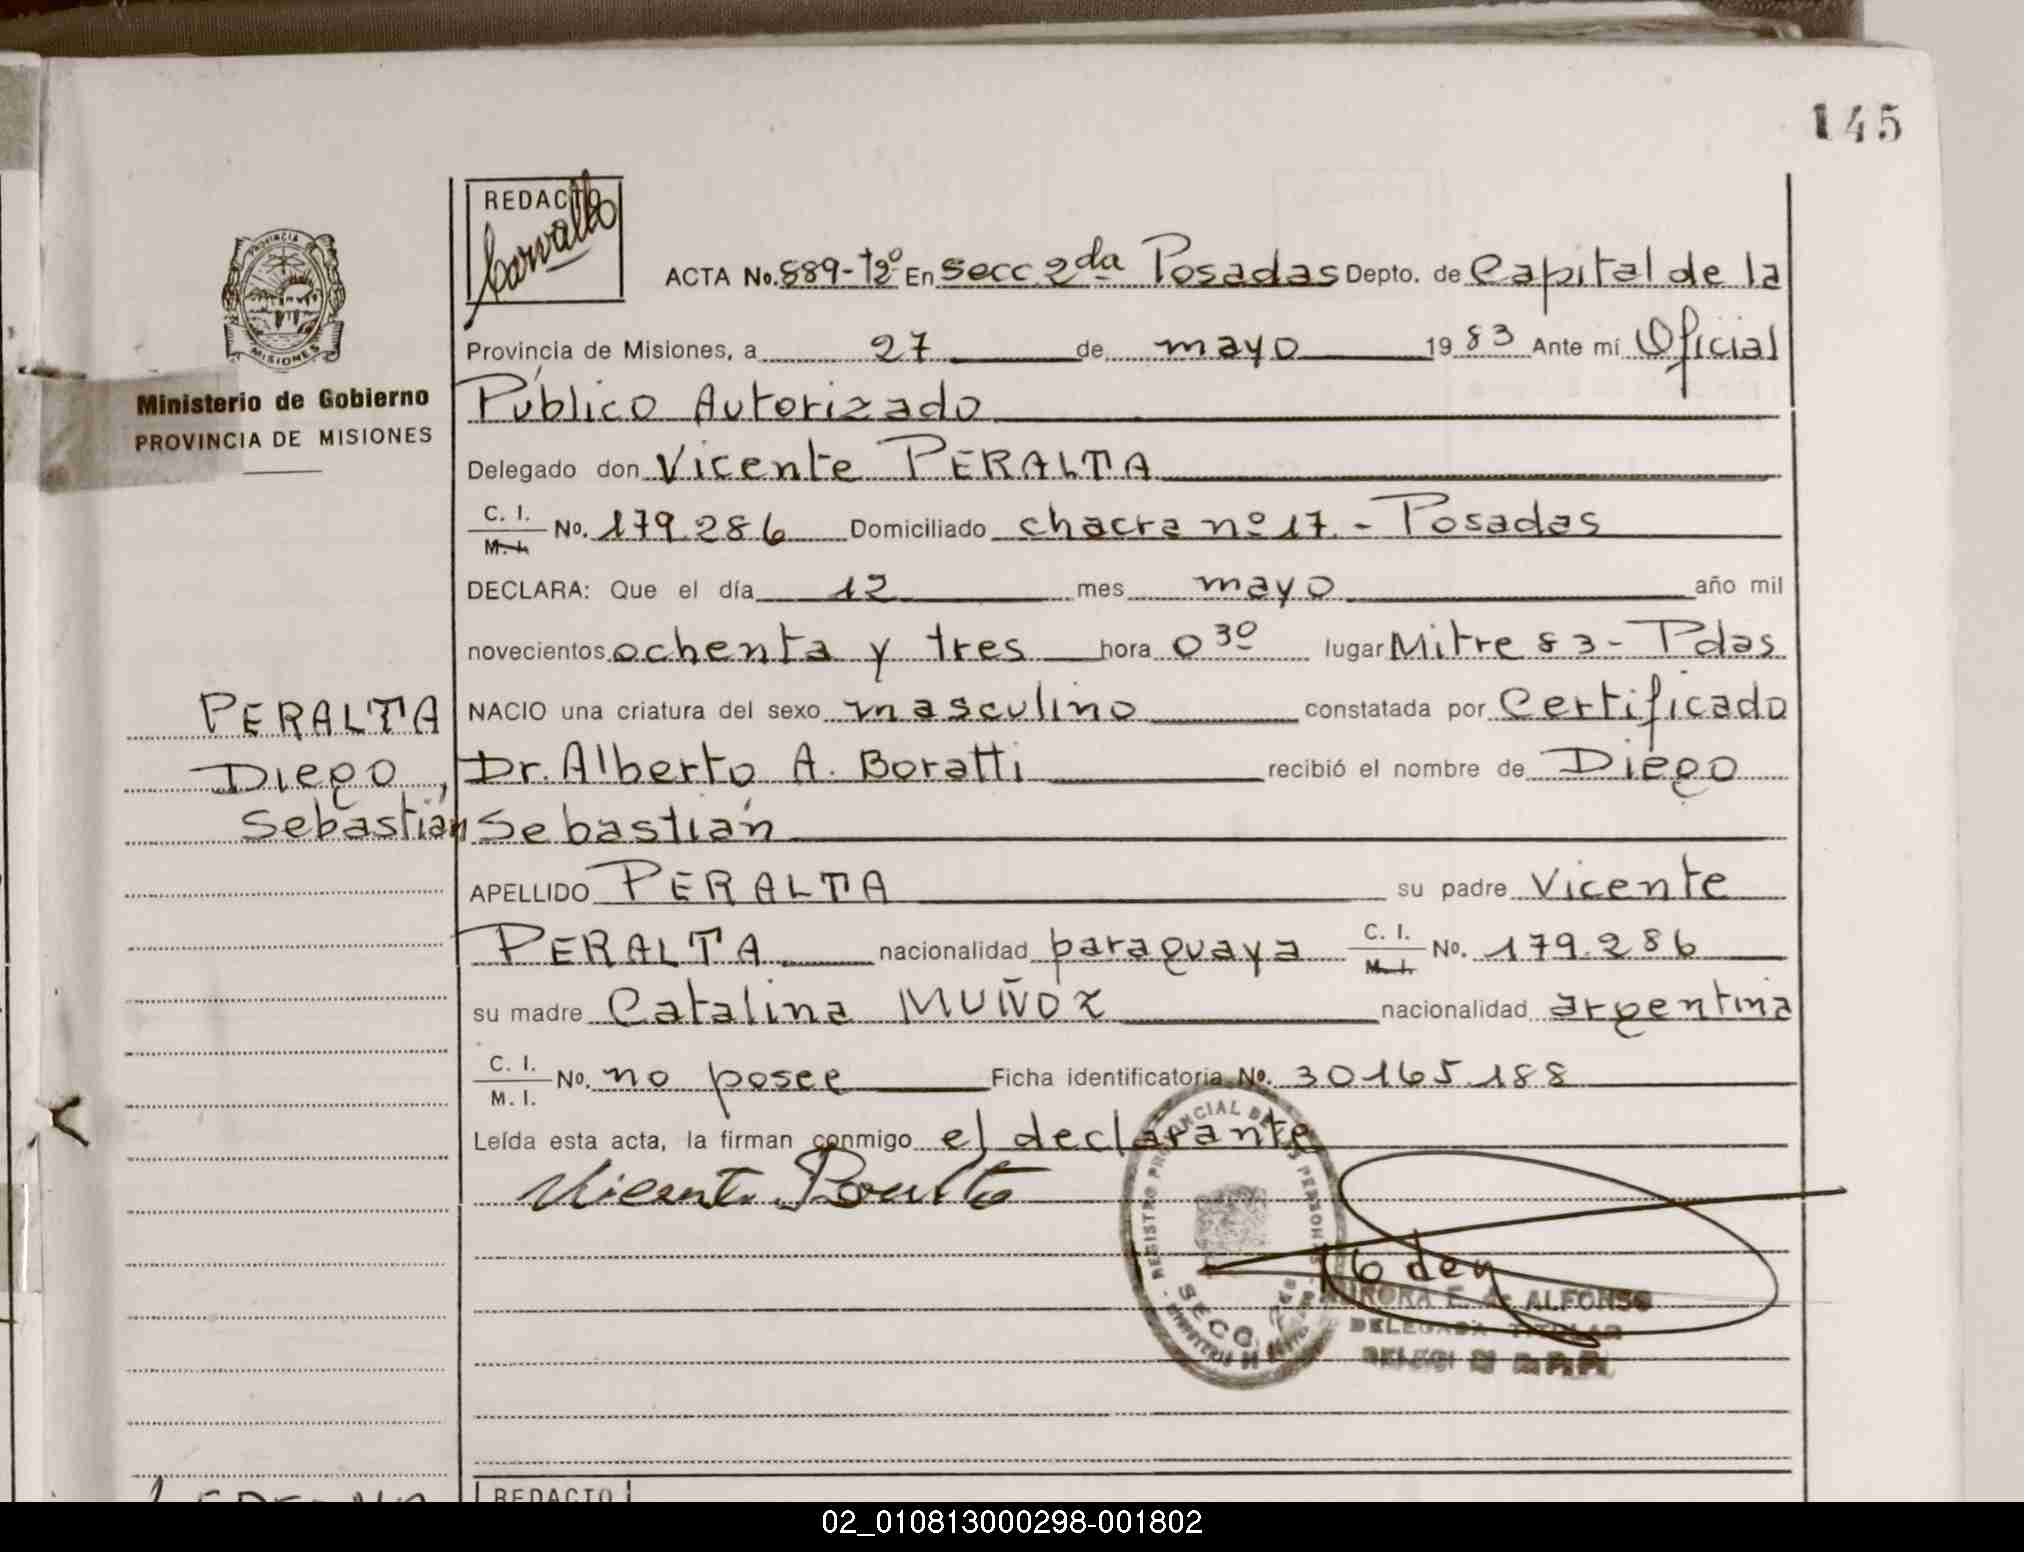 145
REDACTO
Carvallo
PROVINCIA
MISIONES
ACTA No. 889-Tº2º En Secc 2da Posadas Depto. de Capital de la
Provincia de Misiones, a 27 de mayo 1983 Ante mí Oficial
Ministerio de Gobierno
PROVINCIA DE MISIONES
Público Autorizado
Delegado don Vicente PERALTA
C. I. M. I. No. 179.286 Domiciliado chacra nº 17. - Posadas
DECLARA: Que el día 12 mes mayo año mil
novecientos ochenta y tres hora 0 30 lugar Mitre 83 - Pdas
PERALTA
Diego,
Sebastián
NACIO una criatura del sexo masculino constatada por Certificado
Dr. Alberto A. Boratti recibió el nombre de Diego
Sebastián
APELLIDO PERALTA su padre Vicente
PERALTA nacionalidad paraguaya C. I. M. I. No. 179.286
su madre Catalina MUÑOZ nacionalidad argentina
C. I. M. I. No. no posee Ficha identificatoria No. 30165.188
Leída esta acta, la firman conmigo el declarante
Vicente Peralta
SECC
AURORA E. ALFONSO
DELEGADA TITULAR
REDACTO
02_010813000298-001802